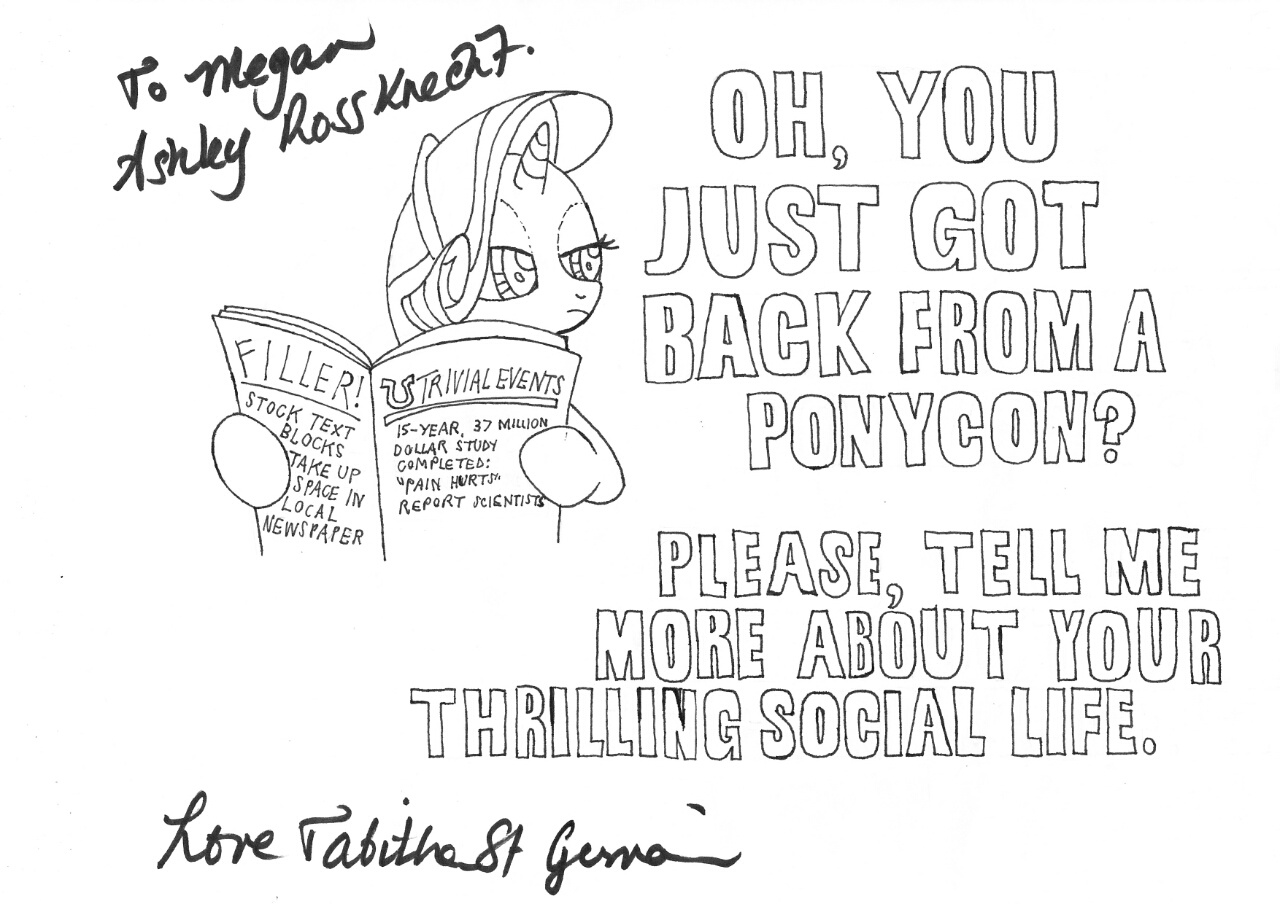 To Megan
Ashley Ross Knecht.
OH, YOU
JUST GOT
BACK FROM A
PONYCON?
FILLER!
STOCK TEXT
BLOCKS
TAKE UP
SPACE IN
LOCAL
NEWSPAPER
TRIVIAL EVENTS
15-YEAR, 37 MILLION
DOLLAR STUDY
COMPLETED:
"PAIN HURTS"
REPORT SCIENTISTS
PLEASE, TELL ME
MORE ABOUT YOUR
THRILLING SOCIAL LIFE.
Love Tabitha St Germain